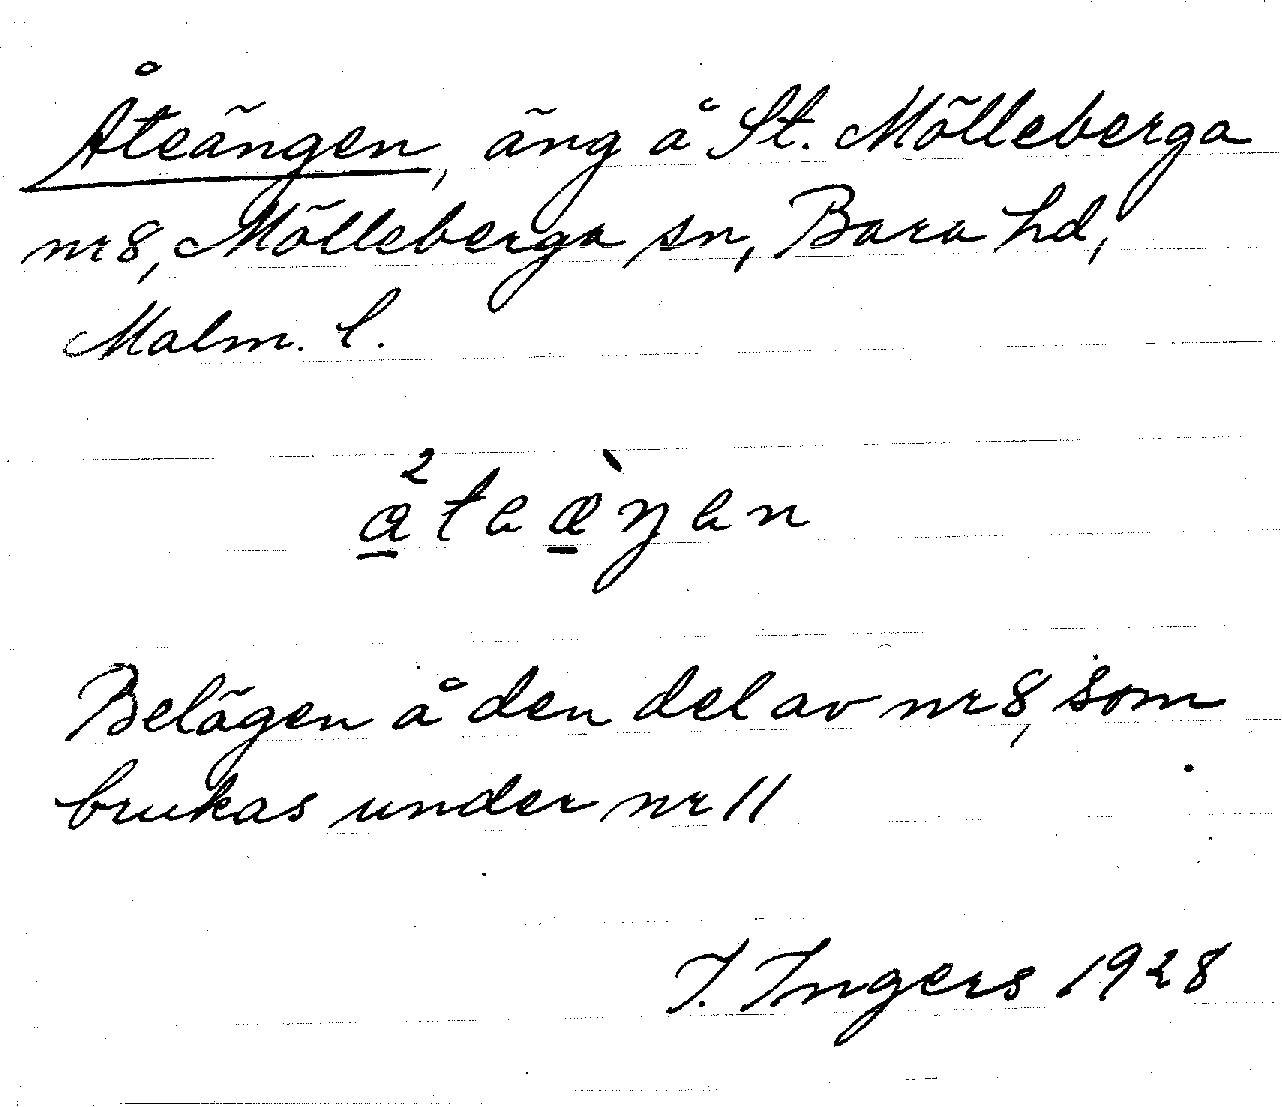 Åteängen, äng å St. Mölleberga
nr 8, Mölleberga sn, Bara hd,
Malm. l.
a̱²teæ̱̀ŋen
Belägen å den del av nr 8, som
brukas under nr 11
I. Ingers 1928